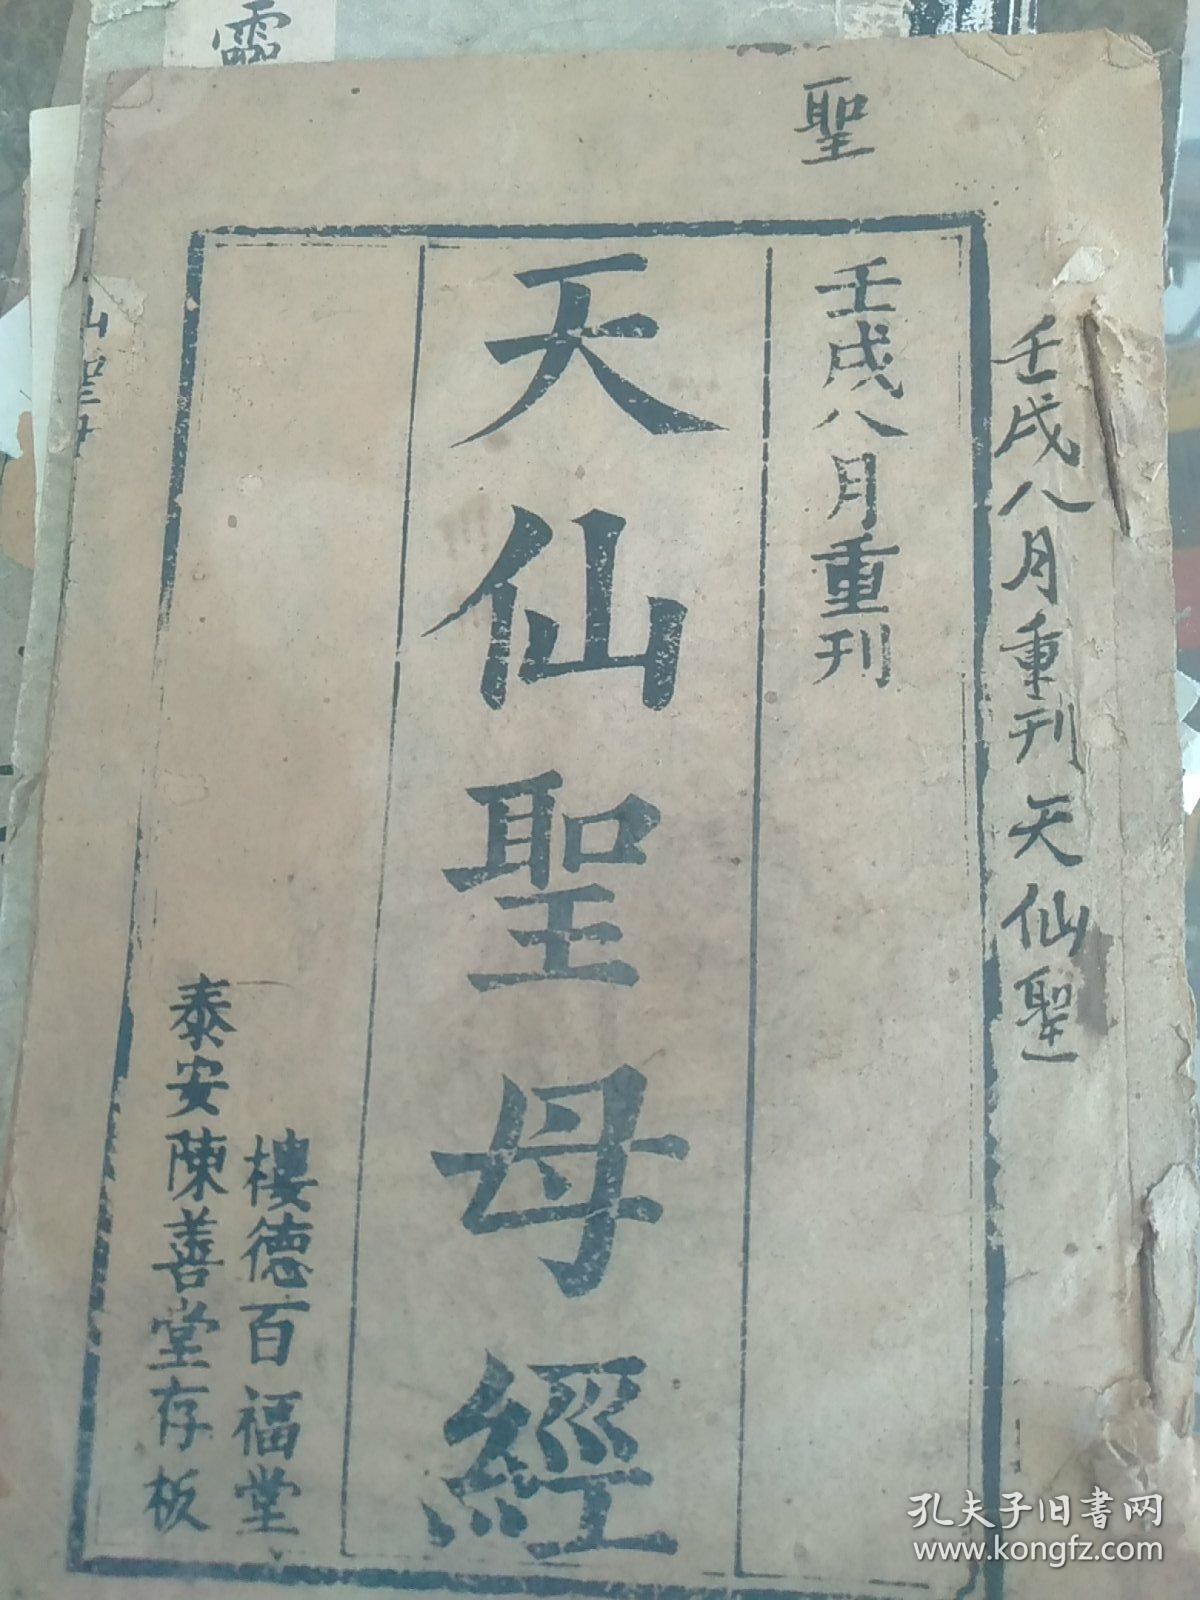 靈
聖
壬戌八月重刊天仙聖
壬戌八月重刊
天仙聖母經
樓德百福堂
泰安陳善堂存板
山聖母
孔夫子旧书网
www.kongfz.com